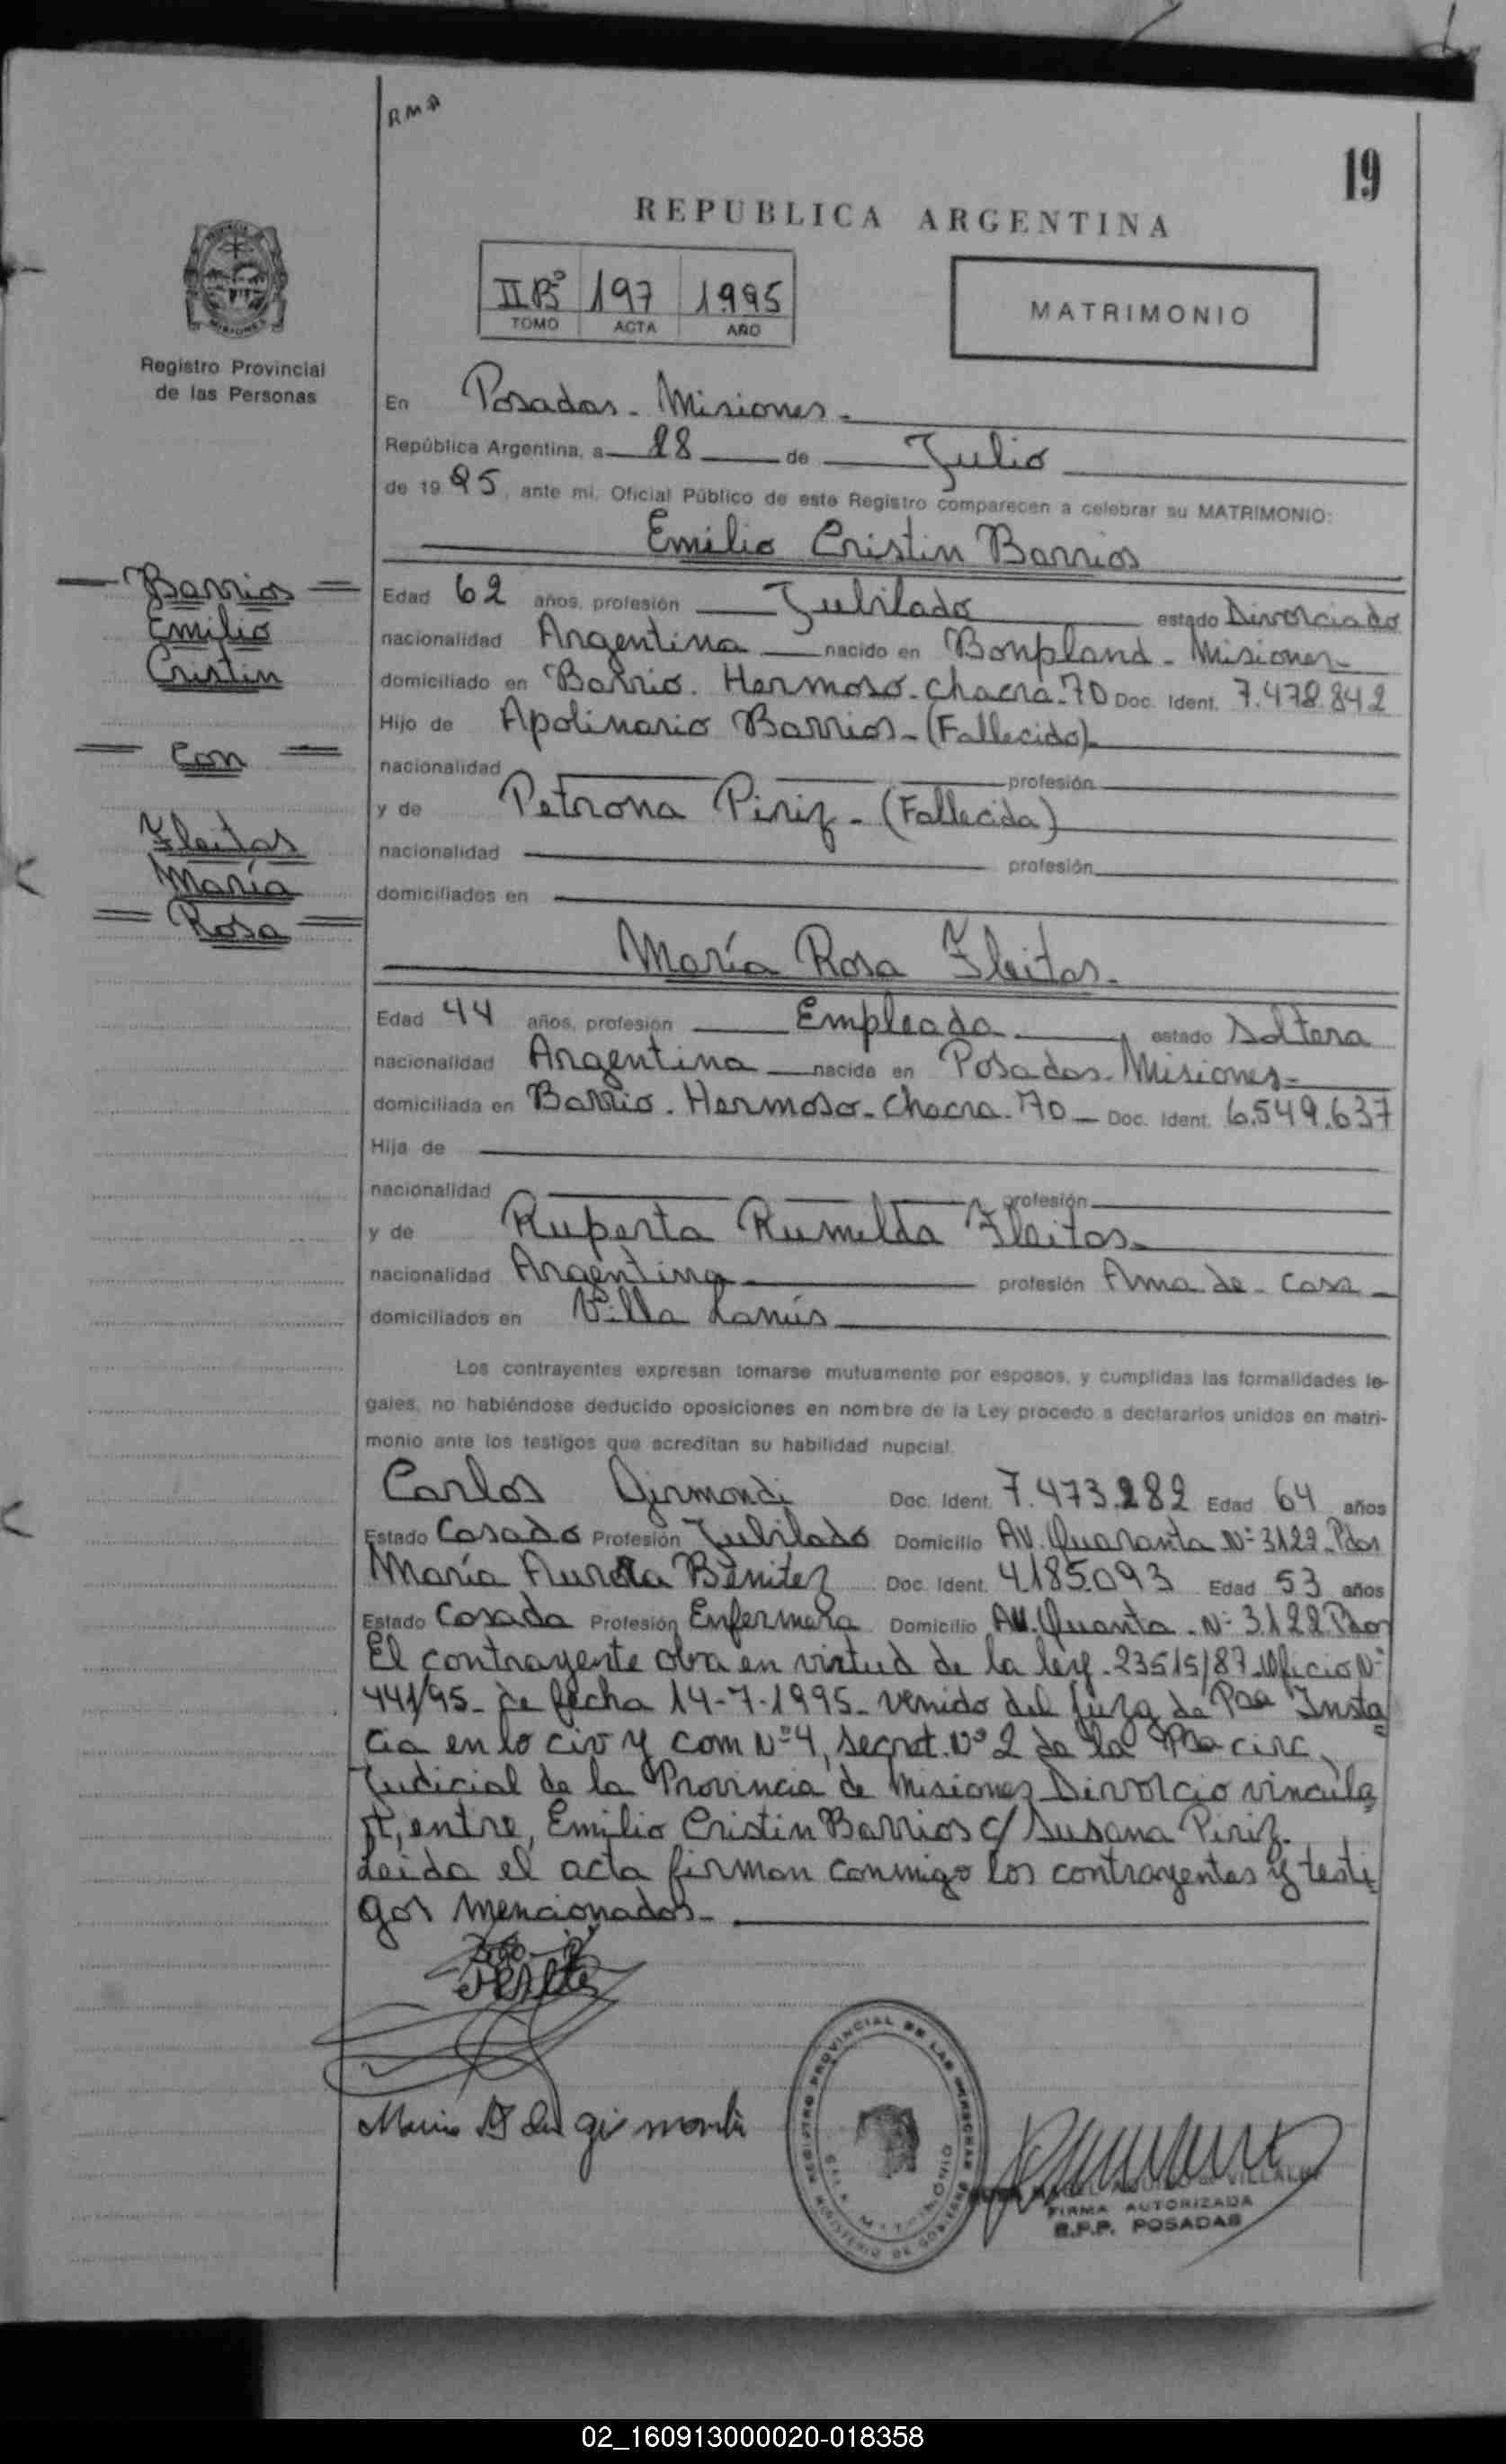 RMA
19
REPUBLICA ARGENTINA
IIBº 197 1995
TOMO ACTA AÑO
MATRIMONIO
Registro Provincial
de las Personas
En Posadas - Misiones -
República Argentina, a 28 de Julio
de 19 95, ante mi, Oficial Público de este Registro comparecen a celebrar su MATRIMONIO:
Emilio Cristin Barrios
Barrios
Emilio
Cristin
Con
Fleitas
María
Rosa
Edad 62 años, profesión Jubilado estado Divorciado
nacionalidad Argentina nacido en Bonpland - Misiones -
domiciliado en Barrio. Hermoso - Chacra - 70 Doc. Ident. 7.478.842
Hijo de Apolinario Barrios - (Fallecido) -
nacionalidad profesión
y de Petrona Piriz - (Fallecida)
nacionalidad profesión
domiciliados en
María Rosa Fleitas -
Edad 44 años, profesión Empleada estado Soltera
nacionalidad Argentina nacida en Posadas - Misiones -
domiciliada en Barrio. Hermoso - Chacra - 70 - Doc. Ident. 6.549.637
Hija de
nacionalidad profesión
y de Ruperta Rumilda Fleitas -
nacionalidad Argentina profesión Ama de - casa -
domiciliados en Villa Lanús
Los contrayentes expresan tomarse mutuamente por esposos, y cumplidas las formalidades le-
gales, no habiéndose deducido oposiciones en nombre de la Ley procedo a declararlos unidos en matri-
monio ante los testigos que acreditan su habilidad nupcial.
Carlos Girmondi Doc. Ident. 7.473.282 Edad 64 años
Estado Casado Profesión Jubilado Domicilio AV. Quaranta Nº 3122 - Pdas
María Aurora Benitez Doc. Ident. 4.185.093 Edad 53 años
Estado Casada Profesión Enfermera Domicilio AV. Quanta - Nº 3.122 Pdas
El contrayente obra en virtud de la ley - 23515/87 - Oficio Nº
441/95 - de fecha 14-7-1995 - venido del Juzg de Pra Insta
cia en lo civ y com Nº 4, secret. Nº 2 de la Pra circ.
Judicial de la Provincia de Misiones Divorcio vincula
, entre, Emilio Cristin Barrios c/ Susana Piriz.
Leida el acta firman conmigo los contrayentes y testi
gos mencionados -
REGISTRO PROVINCIAL DE LAS PERSONAS
MINISTERIO DE GOBIERNO
FIRMA AUTORIZADA
R.P.P. POSADAS
02_160913000020-018358